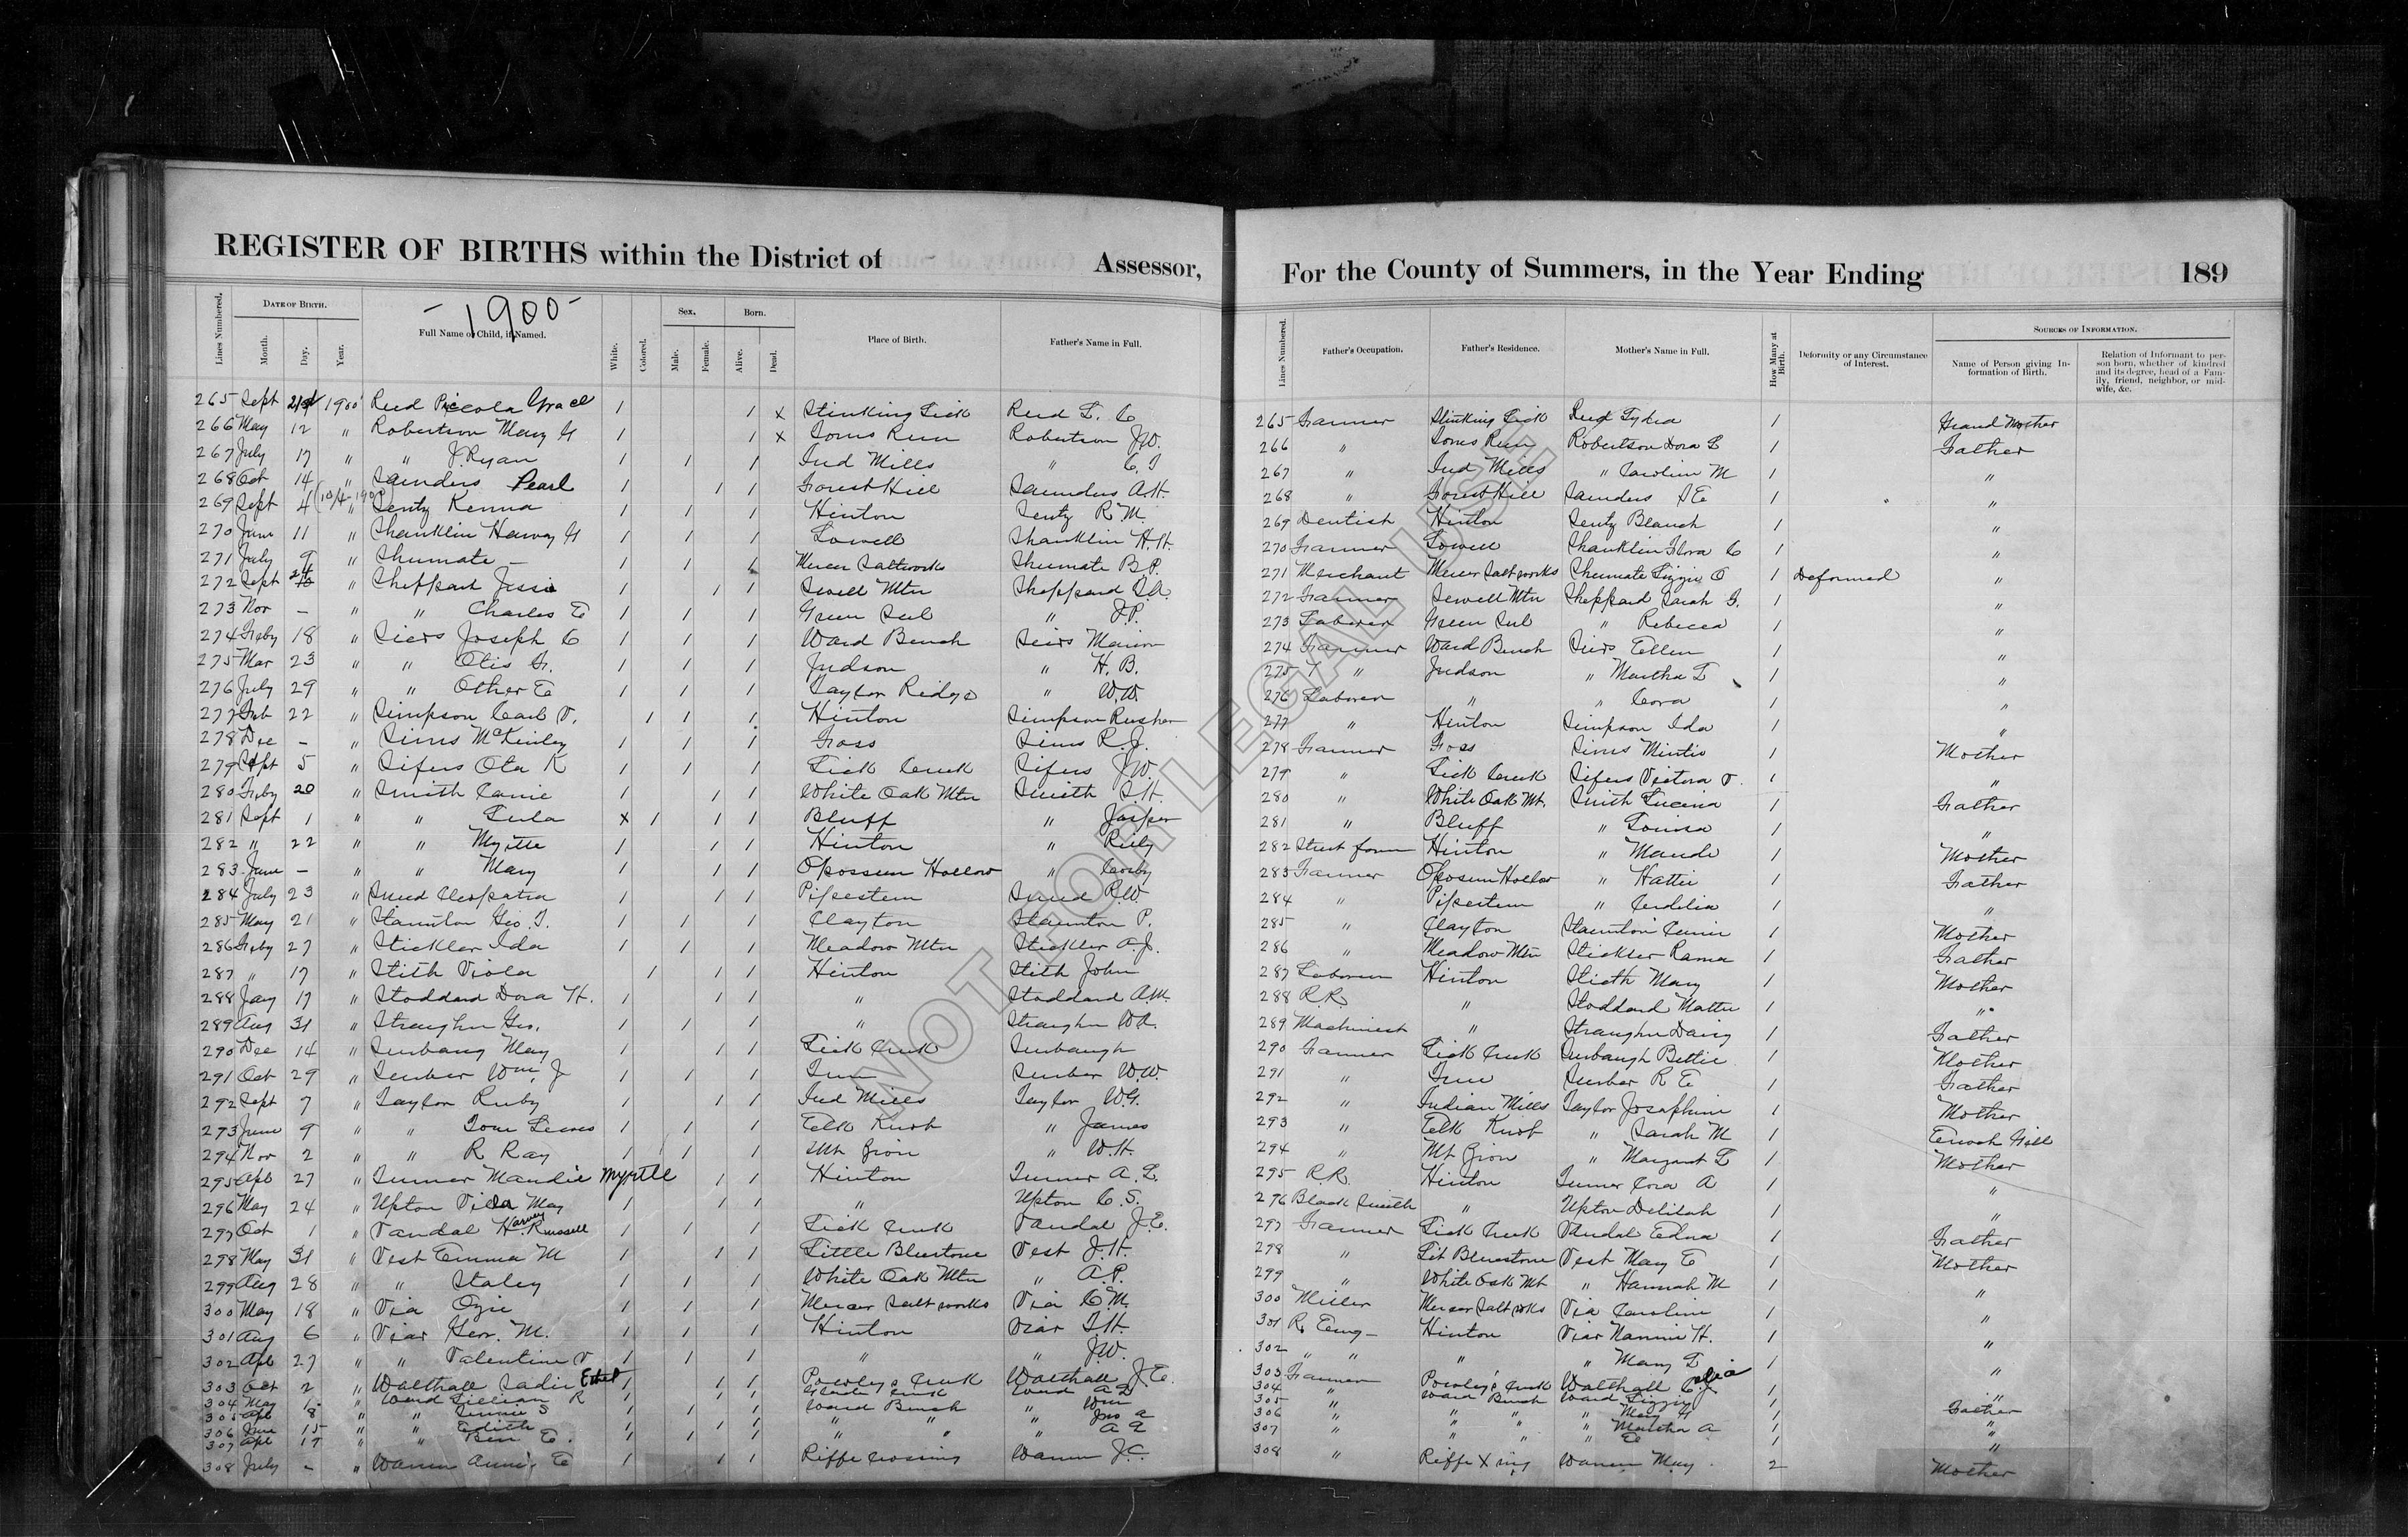 REGISTER OF BIRTHS within the District of Assessor, For the County of Summers, in the Year Ending 189
- 1900 -
Lines Numbered. DATE OF BIRTH. Month. Day. Year. Full Name of Child, if Named. White. Colored. Sex. Male. Female. Born. Alive. Dead. Place of Birth. Father's Name in Full.
Lines Numbered. Father's Occupation. Father's Residence. Mother's Name in Full. How Many at Birth. Deformity or any Circumstance of Interest. SOURCES OF INFORMATION. Name of Person giving Information of Birth. Relation of Informant to person born, whether of kindred and its degree, head of a Family, friend, neighbor, or midwife, &c.
265 Sept 1900 Reed Grace 1 1 x Stinking Lick Reed L. C 265 Farmer Stinking Lick Reed Lydia 1 Grand Mother
266 May 12 " Robertson Mary G 1 1 x Toms Run Robertson J.W. 266 " Toms Run Robertson Dora L 1 Father
267 July 17 " " J. Ryan 1 1 1 Ind Mills " C. I 267 " Ind Mills " Carolin M 1 "
268 Oct 14 " Saunders Pearl 1 1 1 Forest Hill Saunders A.H. 268 " Forest Hill Saunders 1 "
269 Sept 4 " Sentz Kenna 1 1 1 Hinton Sentz R.M. 269 Dentist Hinton Sentz Blanch 1 "
270 June 11 " Shanklin Harvey G 1 1 1 Lowell Shanklin H.H. 270 Farmer Lowell Shanklin Flora C 1 "
271 July 9 " Shumate - 1 1 Mercer Saltworks Shumate B.P. 271 Merchant Mercer Salt works Shumate Lizzie O 1 Deformed "
272 Sept 24 " Sheppard Jessie 1 1 1 Sewell Mtn Sheppard 272 Farmer Sewell Mtn Sheppard Sarah 1 "
273 Nor - " " Charles E 1 1 1 Green Sul " J.P. 273 Laborer Green Sul " Rebecca 1 "
274 Feby 18 " Siers Joseph C 1 1 1 Ward Bench Siers Marion 274 Farmer Ward Bench Siers Ellen 1 "
275 Mar 23 " " Otis 1 1 1 Judson " H. B. 275 " Judson " Martha L 1 "
276 July 29 " " Other E 1 1 1 Taylor Ridge " W.W. 276 Laborer " " Cora 1 "
277 Feb 22 " Simpson Carl V. 1 1 1 Hinton Simpson Rusher 277 " Hinton Simpson Ida 1 "
278 Dec - " Sims McKinley 1 1 1 Foss Sims R.J. 278 Farmer Foss Sims Mintis 1 Mother
279 Sept 5 " Sifers Ota K 1 1 1 Lick Creek Sifers J.W. 279 " Lick Creek Sifers Victora V. 1 "
280 Feby 20 " Smith Canie 1 1 1 White Oak Mtn Smith S.H. 280 " White Oak Mt. Smith Lucina 1 Father
281 Sept 1 " " Lula x 1 1 1 Bluff " Jasper 281 " Bluff " Louisa 1 "
282 " 22 " " Myrtle 1 1 1 Hinton " Riely 282 Street Hinton " Maude 1 Mother
283 June - " " Mary 1 1 1 Opossum Hollow " Cosby 283 Farmer Oposum Hollow " Hattie 1 Father
284 July 23 " Sneed Cleopatra 1 1 1 Pipestem Sneed R.W. 284 " Pipestem " Cordelia 1 "
285 May 21 " Staunton Geo. T. 1 1 1 Clayton Staunton P. 285 " Clayton Staunton 1 Mother
286 Feby 27 " Stickler Ida 1 1 1 Meadow Mtn Stickler A.J. 286 " Meadow Mtn Stickler Rama 1 Father
287 " 17 " Stith Viola 1 1 1 Hinton Stith John 287 Laborer Hinton Stith Mary 1 Mother
288 Jany 17 " Stoddard Dora H. 1 1 1 " Stoddard A.M. 288 R.R. " Stoddard Mattie 1 "
289 Aug 31 " Straughn Geo. 1 1 1 " Straughn W.A. 289 Machinest " Straughn Daisy 1 Father
290 Dec 14 " Surbaug May 1 1 1 Lick Creek Surbaugh 290 Farmer Lick Creek Surbaugh Bettie 1 Mother
291 Oct 29 " Surber Wm. J 1 1 1 Surber W.W. 291 " Surber R E 1 Father
292 Sept 7 " Taylor Ruby 1 1 1 Ind Mills Taylor W.G. 292 " Indian Mills Taylor Josephine 1 Mother
293 June 9 " " 1 1 1 Elk Knob " James 293 " Elk Knob " Sarah M 1 Enoch Gill
294 Nor 2 " " R Ray 1 1 1 Mt Zion " W.H. 294 " Mt Zion " Margaret L 1 Mother
295 Apl 27 " Turner Maudie Myrtle 1 1 Hinton Turner A. L. 295 R.R. Hinton Turner Cora A 1 "
296 May 24 " Upton May 1 1 1 " Upton C. S. 296 Black Smith " Upton Delilah 1 "
297 Oct 1 " Vandal Harvey Russell 1 1 1 Lick Creek Vandal J.E. 297 Farmer Lick Creek Vandal Edna 1 Father
298 May 31 " Vest Emma M 1 1 1 Little Bluestone Vest J.H. 298 " Lit Bluestone Vest Mary E 1 Mother
299 Aug 28 " " Staley 1 1 1 White Oak Mtn " A.P. 299 " White Oak Mt " Hannah M 1 "
300 May 18 " Via Ozie 1 1 1 Mercer Salt works Via C.M. 300 Miller Mercer Salt wks Via Caroline 1
301 Aug 6 " Viar Geo. M. 1 1 1 Hinton Viar T.H. 301 R. Eng - Hinton Viar Nannie H. 1 "
302 Apl 27 " " Valentine V 1 1 1 " " J.W. 302 " " " " Mary L 1 "
303 Oct 2 " Walthall Sadie Ethel 1 1 1 Powley's Creek Walthall J.E. 303 Farmer Powley's Creek Walthall 1 "
304 May " Ward Lillian R 1 1 1 Creek Ward A L 304 " Ward Bench Ward Lizzie 1 Father
305 Apl 8 " " S 1 1 1 Ward Bench " Wm 305 " " " " Mary 1 "
306 June 15 " " Edith 1 1 1 " " " Jno A 306 " " " " Martha A 1 "
307 Apl 17 " " Ben E. 1 1 1 " " " A L 307 " " " " E 1 "
308 July - " Warren Annie E 1 1 1 Riffe Crossing Warren J.C. 308 " Riffe X ing Warren May 2 Mother
NOT FOR LEGAL USE